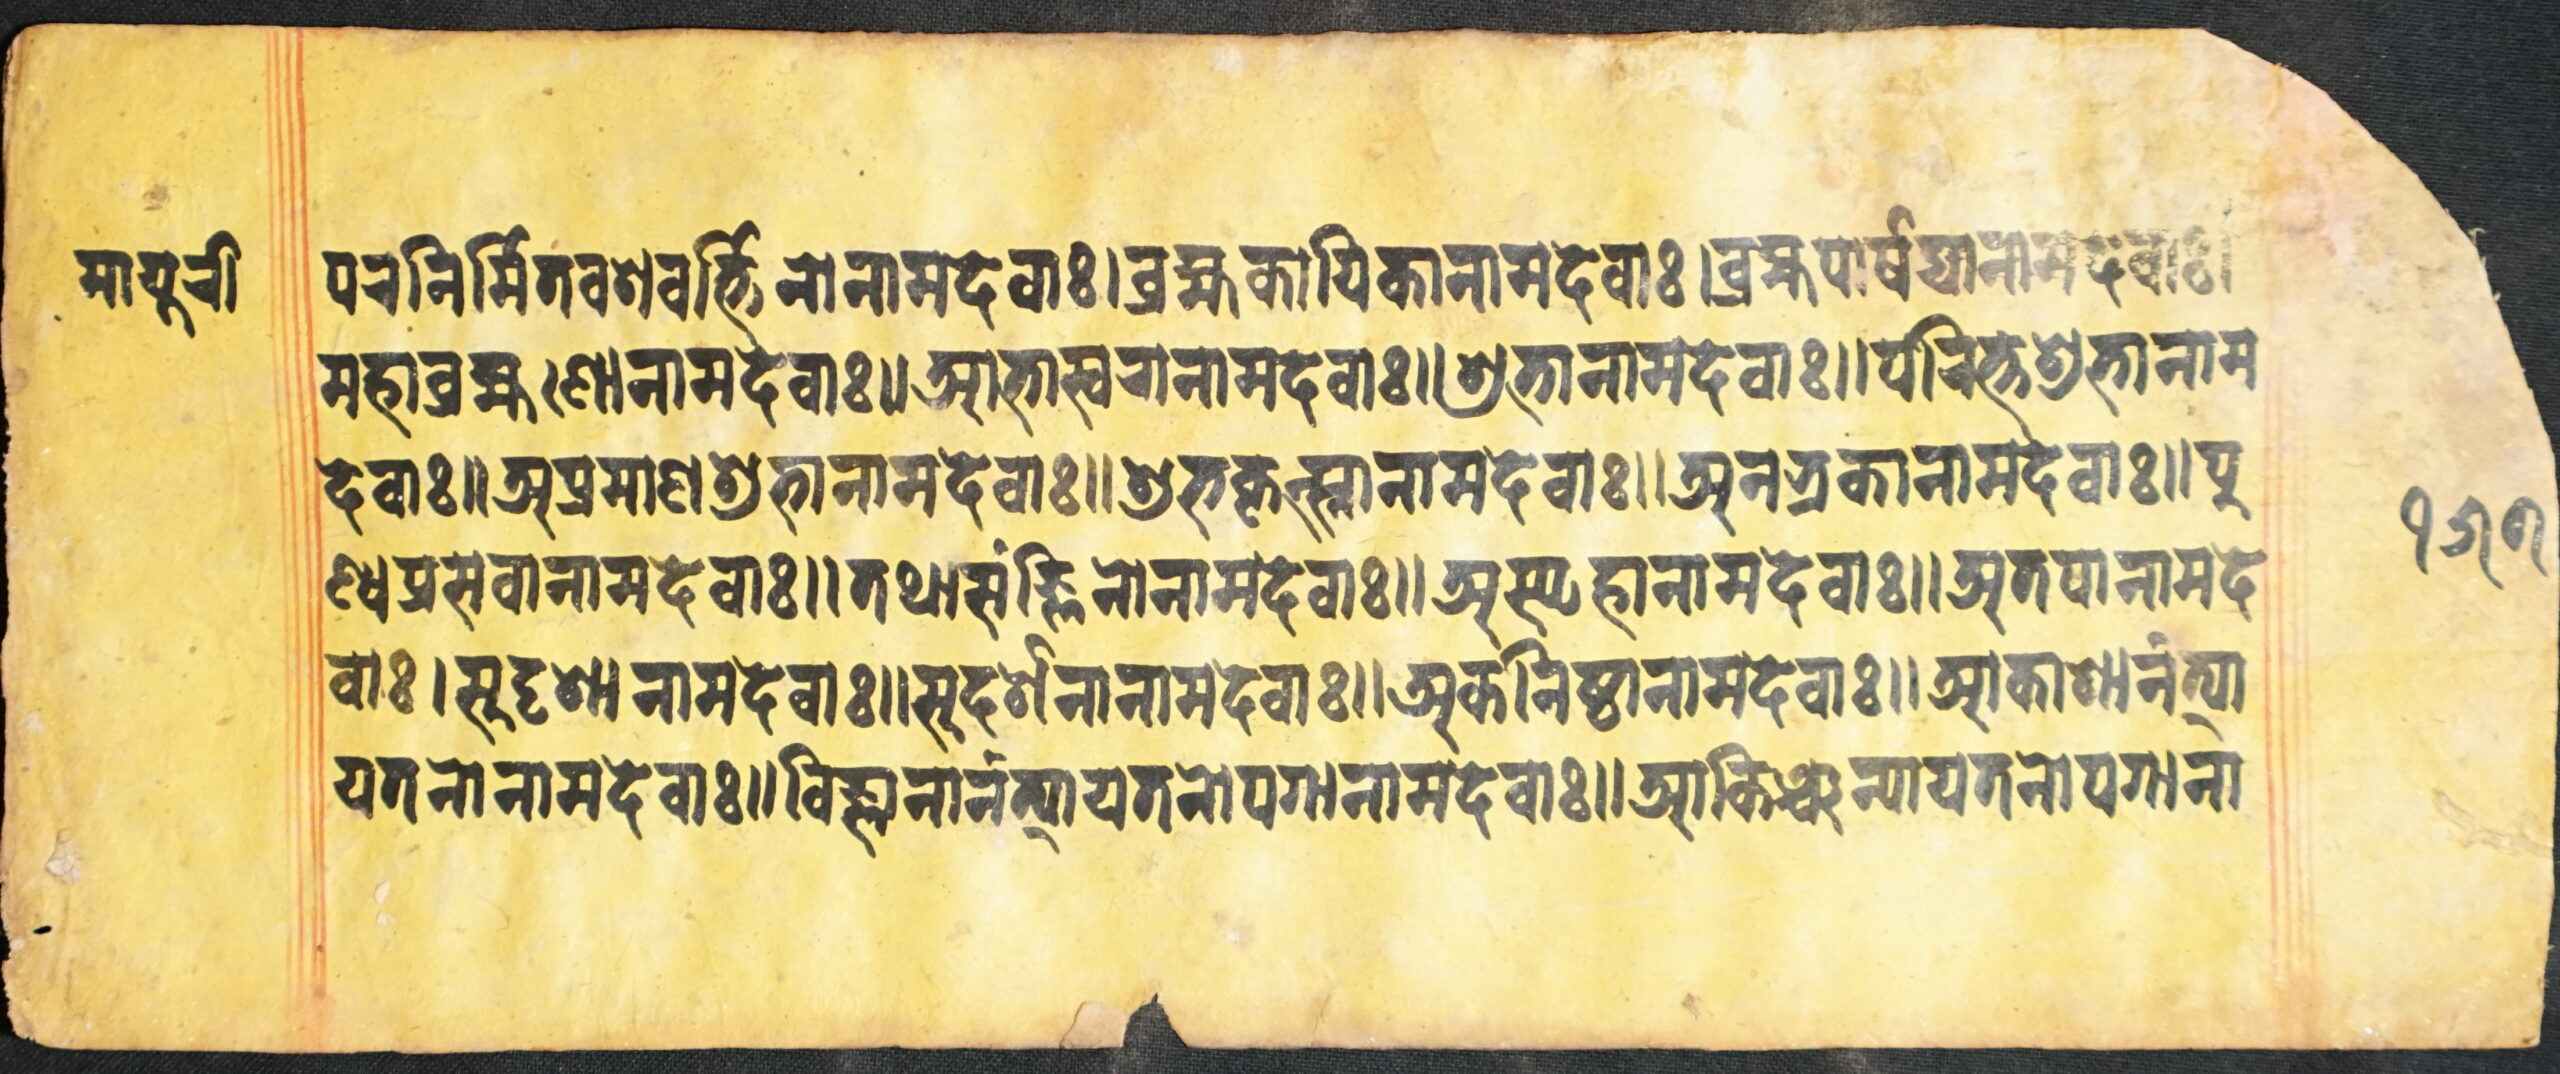 मायूरी
परनिर्मितवशवर्त्तिनोनामदेवाः।ब्रह्मकायिकानामदेवाः।ब्रह्मपार्षद्यानामदेवाः।
महाब्रह्मणोनामदेवाः॥आभास्वरानामदेवाः॥शुभानामदेवाः॥परित्तशुभानाम
देवाः॥अप्रमाणशुभानामदेवाः॥शुभकृत्स्नानामदेवाः॥अनभ्रकानामदेवाः॥पु
ण्यप्रसवानामदेवाः॥तथासंज्ञिनोनामदेवाः॥अस्पृहानामदेवाः॥अतपानामदे
वाः।सुदृशानामदेवाः॥सुदर्शनानामदेवाः॥अकनिष्ठानामदेवाः॥आकाशानंत्या
यतनोनामदेवाः॥विज्ञानानंत्यायतनोपगानामदेवाः॥आकिञ्चन्यायतनोपगाना